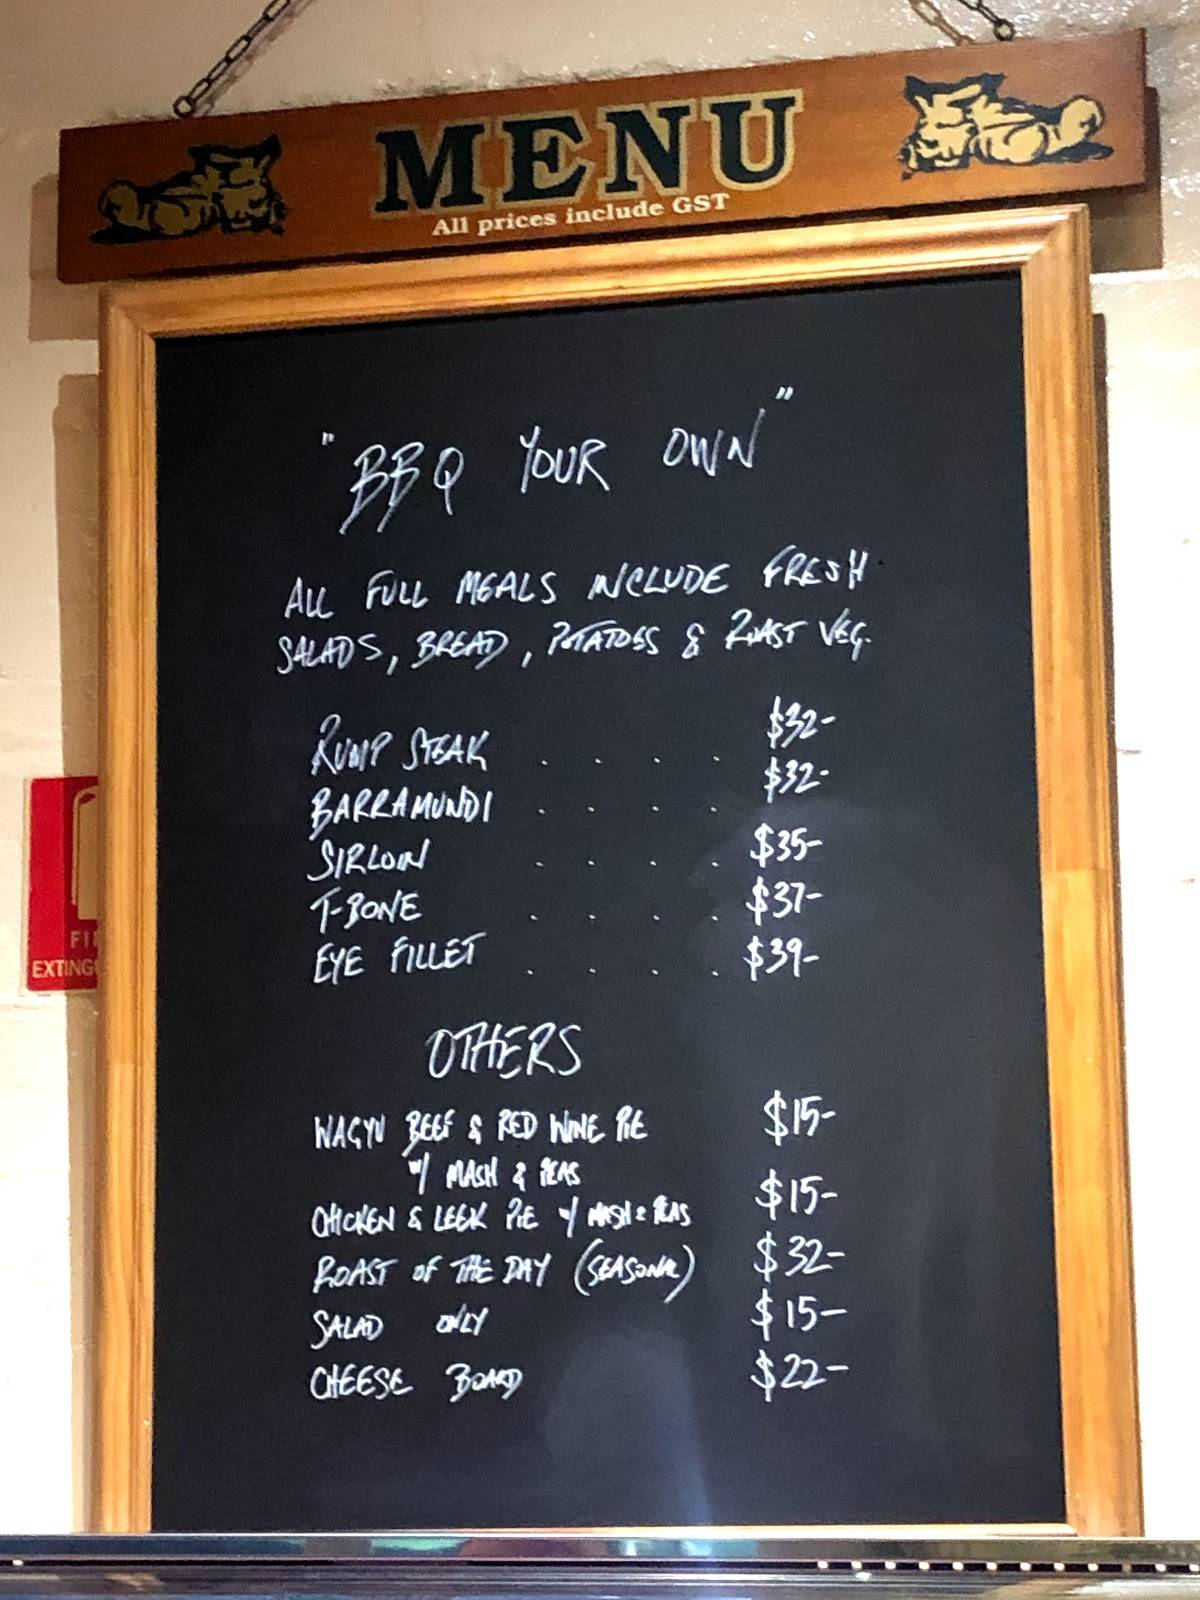 MENU
All prices include GST
"BBQ YOUR OWN"
ALL FULL MEALS INCLUDE FRESH
SALADS, BREAD, POTATOES & ROAST VEG.
RUMP STEAK . . . . $32-
BARRAMUNDI . . . . $32-
SIRLOIN . . . . $35-
T-BONE . . . . $37-
EYE FILLET . . . . $39-
OTHERS
WAGYU BEEF & RED WINE PIE $15-
W/ MASH & PEAS
CHICKEN & LEEK PIE W/ MASH & PEAS $15-
ROAST OF THE DAY (SEASONAL) $32-
SALAD ONLY $15-
CHEESE BOARD $22-
FI
EXTING